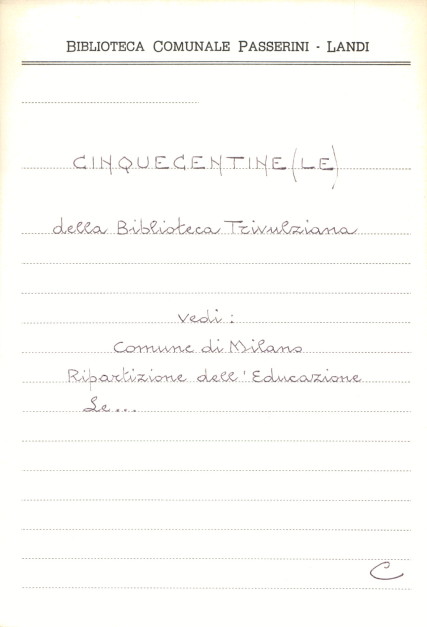 BIBLIOTECA COMUNALE PASSERINI - LANDI
CINQUECENTINE (LE)
della Biblioteca Trivulziana
vedi:
Comune di Milano
Ripartizione dell'Educazione
Le...
C